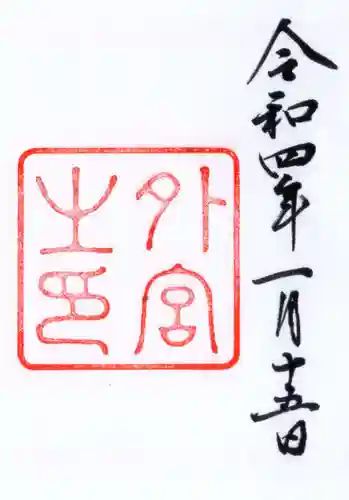 令和四年一月十五日
外宮
之印